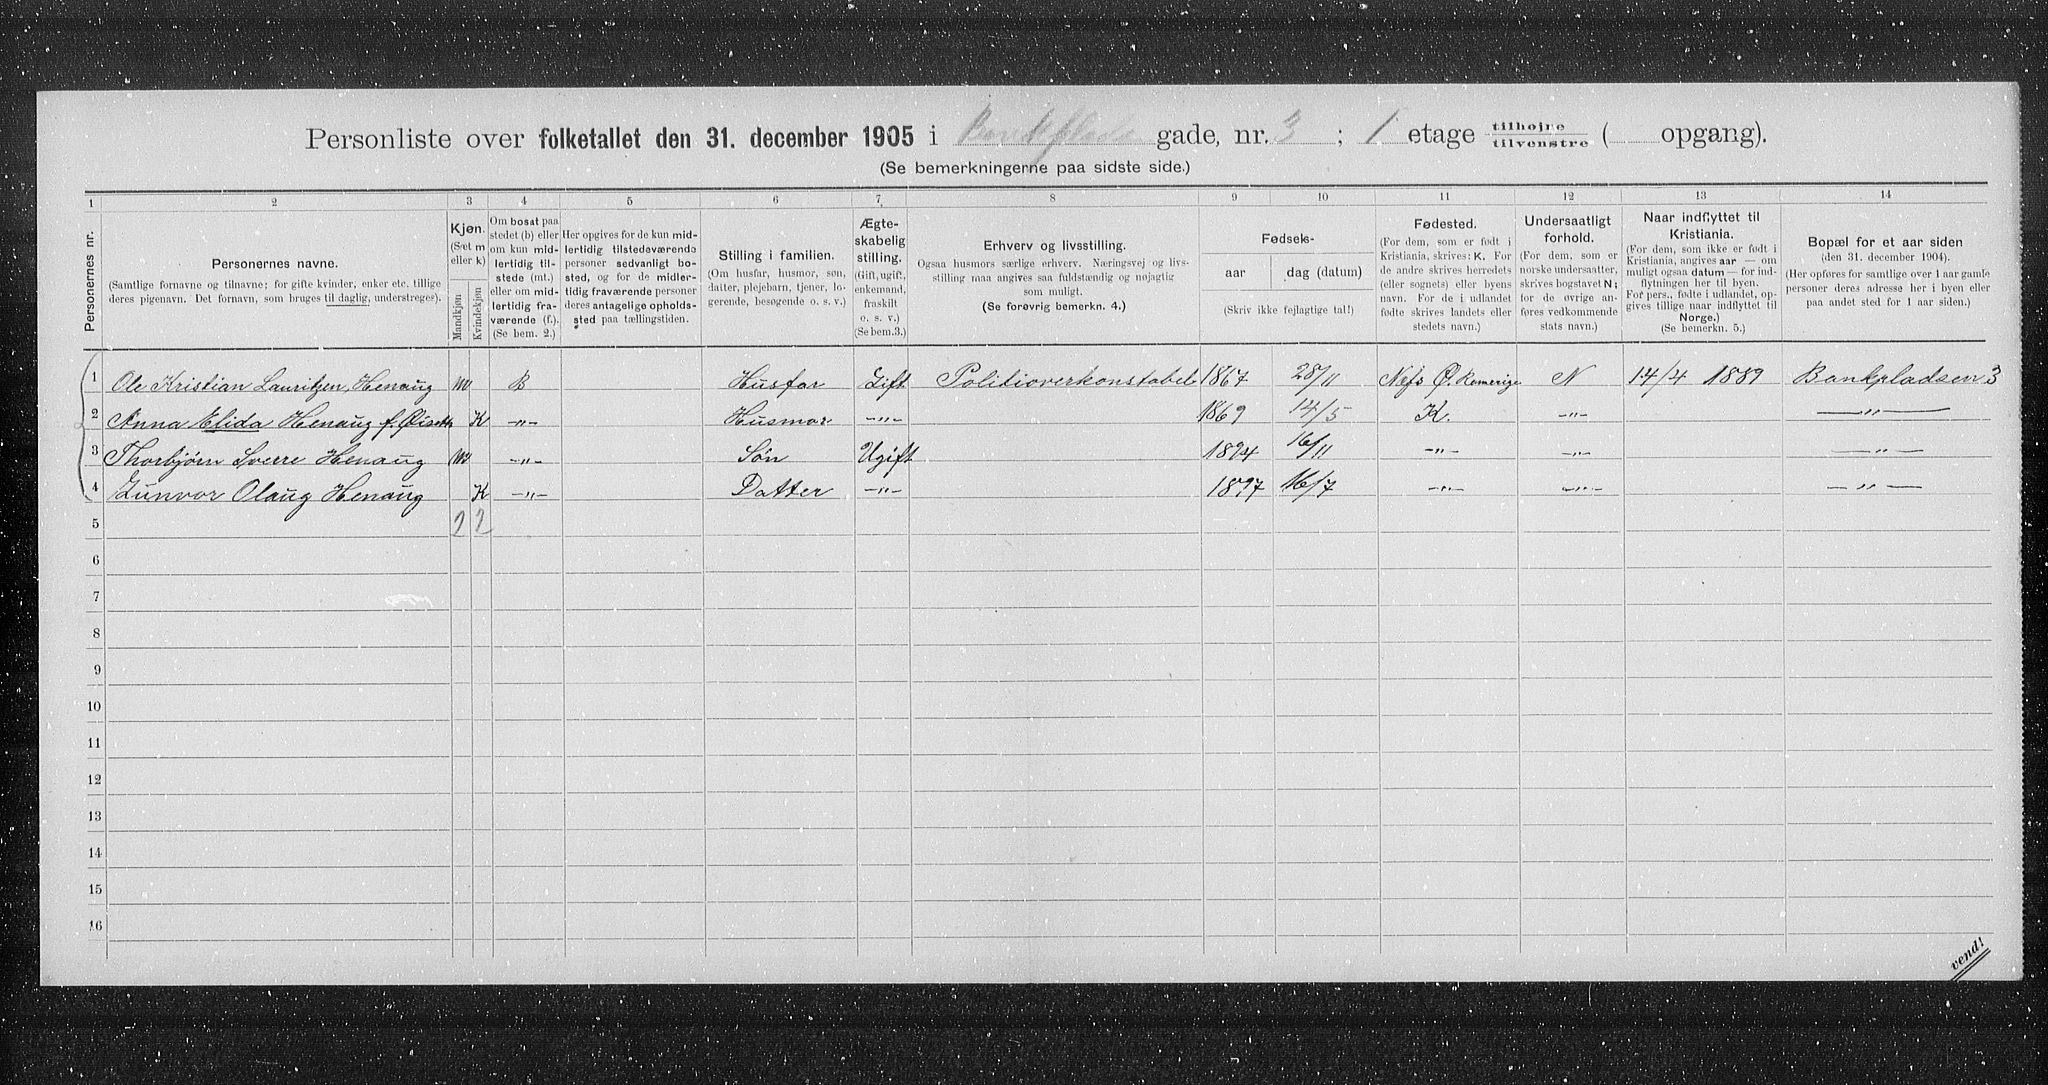 Personliste over folketallet den 31. december 1905 i Bankplads gade, nr. 3 ; 1 etage tilhøjre tilvenstre ( opgang).
(Se bemerkningerne paa sidste side.)
1 2 3 4 5 6 7 8 9 10 11 12 13 14
Personernes nr.
Personernes navne.
(Samtlige fornavne og tilnavne; for gifte kvinder, enker etc. tillige
deres pigenavn. Det fornavn, som bruges til daglig, understreges).
Kjøn.
(Sæt m
eller k)
Mandkjøn
Kvindekjøn
Om bosat paa
stedet (b) eller
om kun mid-
lertidig til-
stede (mt.)
eller om mid-
lertidig fra-
værende (f.).
(Se bem. 2.)
Her opgives for de kun mid-
lertidig tilstedeværende
personer sedvanligt bo-
sted, og for de midler-
tidig fraværende personer
deres antagelige opholds-
sted paa tællingstiden.
Stilling i familien.
(Om husfar, husmor, søn,
datter, plejebarn, tjener, lo-
gerende, besøgende o. s. v.)
Ægte-
skabelig
stilling.
(Gift, ugift,
enkemand,
fraskilt
o. s. v.)
(Se bem. 3.)
Erhverv og livsstilling.
Ogsaa husmors særlige erhverv. Næringsvej og livs-
stilling maa angives saa fuldstændig og nøjagtig
som muligt.
(Se forøvrig bemerkn. 4.)
Fødsels-
aar dag (datum)
(Skriv ikke fejlagtige tal!)
Fødested.
(For dem, som er født i
Kristiania, skrives: K. For
de andre skrives herredets
(eller sognets) eller byens
navn. For de i udlandet
fødte skrives landets eller
stedets navn.)
Undersaatligt
forhold.
(For dem, som er
norske undersaatter,
skrives bogstavet N;
for de øvrige an-
føres vedkommende
stats navn.)
Naar indflyttet til
Kristiania.
(For dem, som ikke er født i
Kristiania, angives aar — om
muligt ogsaa datum — for ind-
flytningen her til byen.
For pers., fødte i udlandet, op-
gives tillige naar indflyttet til
Norge.)
(Se bemerkn. 5.)
Bopæl for et aar siden
(den 31. december 1904).
(Her opføres for samtlige over 1 aar gamle
personer deres adresse her i byen eller
paa andet sted for 1 aar siden.)
1 Ole Kristian Lauritzen Henaug m B Husfar Gift Politioverkonstabel 1867 28/11 Nefs Ø. Romerige N 14/4 1889 Bankpladsen 3
2 Anna Elida Henaug f. K -„- Husmor -„- 1869 14/5 K. -„- -„-
3 Thorbjørn Sverre Henaug m -„- Søn Ugift 1894 16/11 -„- -„- -„-
4 Gunvor Olaug Henaug K -„- Datter -„- 1897 16/7 -„- -„- -„-
5 2 2
6
7
8
9
10
11
12
13
14
15
16
vend!